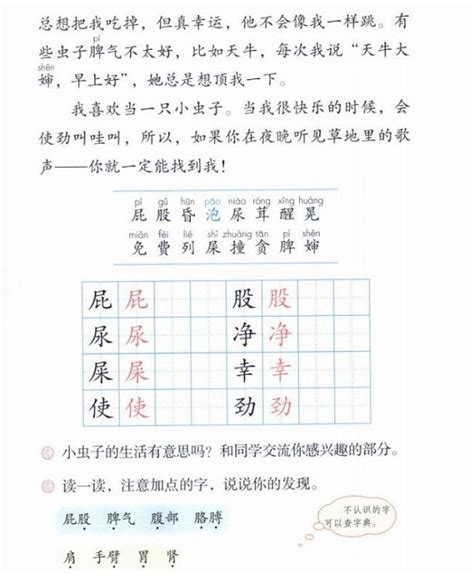 总想把我吃掉，但真幸运，他不会像我一样跳。有
些虫子脾气不太好，比如天牛，每次我说“天牛大
婶，早上好”，她总是想顶我一下。
我喜欢当一只小虫子。当我很快乐的时候，会
使劲叫哇叫，所以，如果你在夜晚听见草地里的歌
声——你就一定能找到我！
pì gǔ hūn pāo niào róng xǐng huàng
屁 股 昏 泡 尿 茸 醒 晃
miǎn fèi liè shǐ zhuàng tān pí shěn
免 费 列 屎 撞 贪 脾 婶
屁 屁 股 股
尿 尿 净 净
屎 屎 幸 幸
使 使 劲 劲
小虫子的生活有意思吗？和同学交流你感兴趣的部分。
读一读，注意加点的字，说说你的发现。
不认识的字
可以查字典。
屁股 脾气 腹部 胳膊
肩 手臂 胃 肾